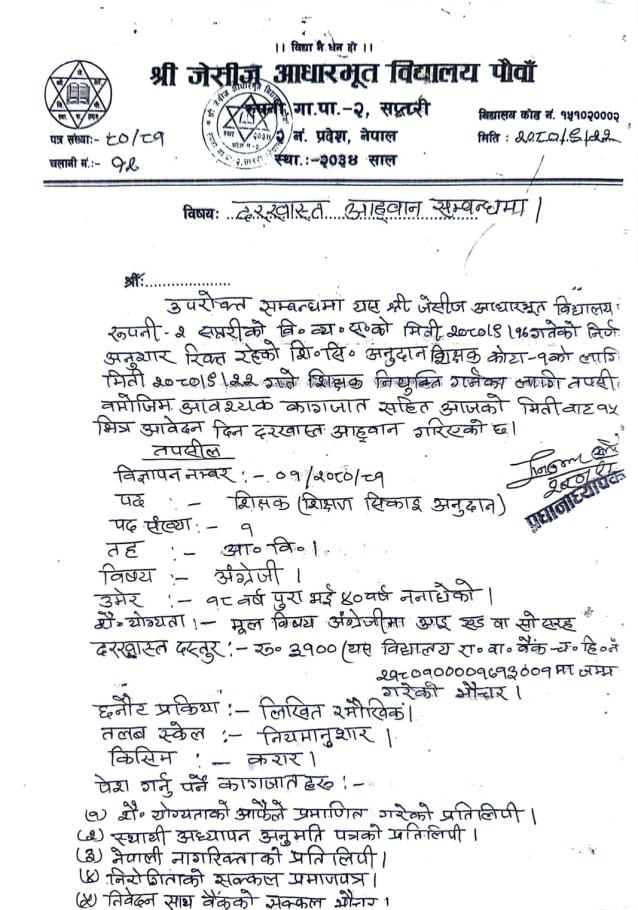 ।। विद्या नै धन हो ।।
श्री जेसीज आधारभूत विद्यालय पौवाँ
रूपनी गा.पा.-२, सप्तरी
विद्यालय कोड नं. १५१०२०००२
पत्र संख्याः- ८०/८१
२ नं. प्रदेश, नेपाल
मिति : २०८०/९/२२
चलानी नं.:- १२
स्था.:-२०३४ साल
विषयः दरखास्त आह्वान सम्बन्धमा |
श्रीः
उपरोक्त सम्बन्धमा यस श्री जेसीज आधारभूत विद्यालय
रूपनी-२ सप्तरीको वि॰ व्य॰ स॰को मिती २०८०/९/१६ गतेको निर्ण
अनुशार रिक्त रहेको शि॰सि॰ अनुदान शिक्षक कोटा-१को लागि
मिती २०८०/९/२२ गते शिक्षक नियुक्ति गर्नका लागि तपसी
वमोजिम आवश्यक कागजात सहित आजको मिती वाट १५
भित्र आवेदन दिन दरखास्त आह्वान गरिएको छ।
तपसील
विज्ञापन नम्बर :-. ०१/२०८०/८१
पद :- शिक्षक (शिक्षण सिकाइ अनुदान)
प्रधानाध्यापक
पद संख्या :- १
तह :- आ॰ वि॰ |
विषय :- अंग्रेजी |
उमेर :- १८ वर्ष पुरा भई ४० वर्ष ननाघेको |
शै॰ योग्यता :- मूल विषय अंग्रेजीमा आइ एड वा सो सरह
दरखास्त दस्तुर :- रु॰ ३१०० (यस विद्यालय रा॰ वा॰ बैंक-च॰ हि॰ नं
मा जम्मा
गरेको भौचर |
छनौट प्रकिया :- लिखित र मौखिक|
तलब स्केल :- नियमानुशार |
किसिम :- करार |
पेश गर्नु पर्ने कागजातहरु :-
(१) शै॰ योग्यताको आफैले प्रमाणित गरेको प्रतिलिपी |
(२) स्थायी अध्यापन अनुमति पत्रको प्रतिलिपी |
(३) नेपाली नागरिक्ताको प्रतिलिपी |
(४) निरोगिताको सक्कल प्रमाणपत्र |
(५) निवेदन साथ बैंकको सक्कल भौचर |